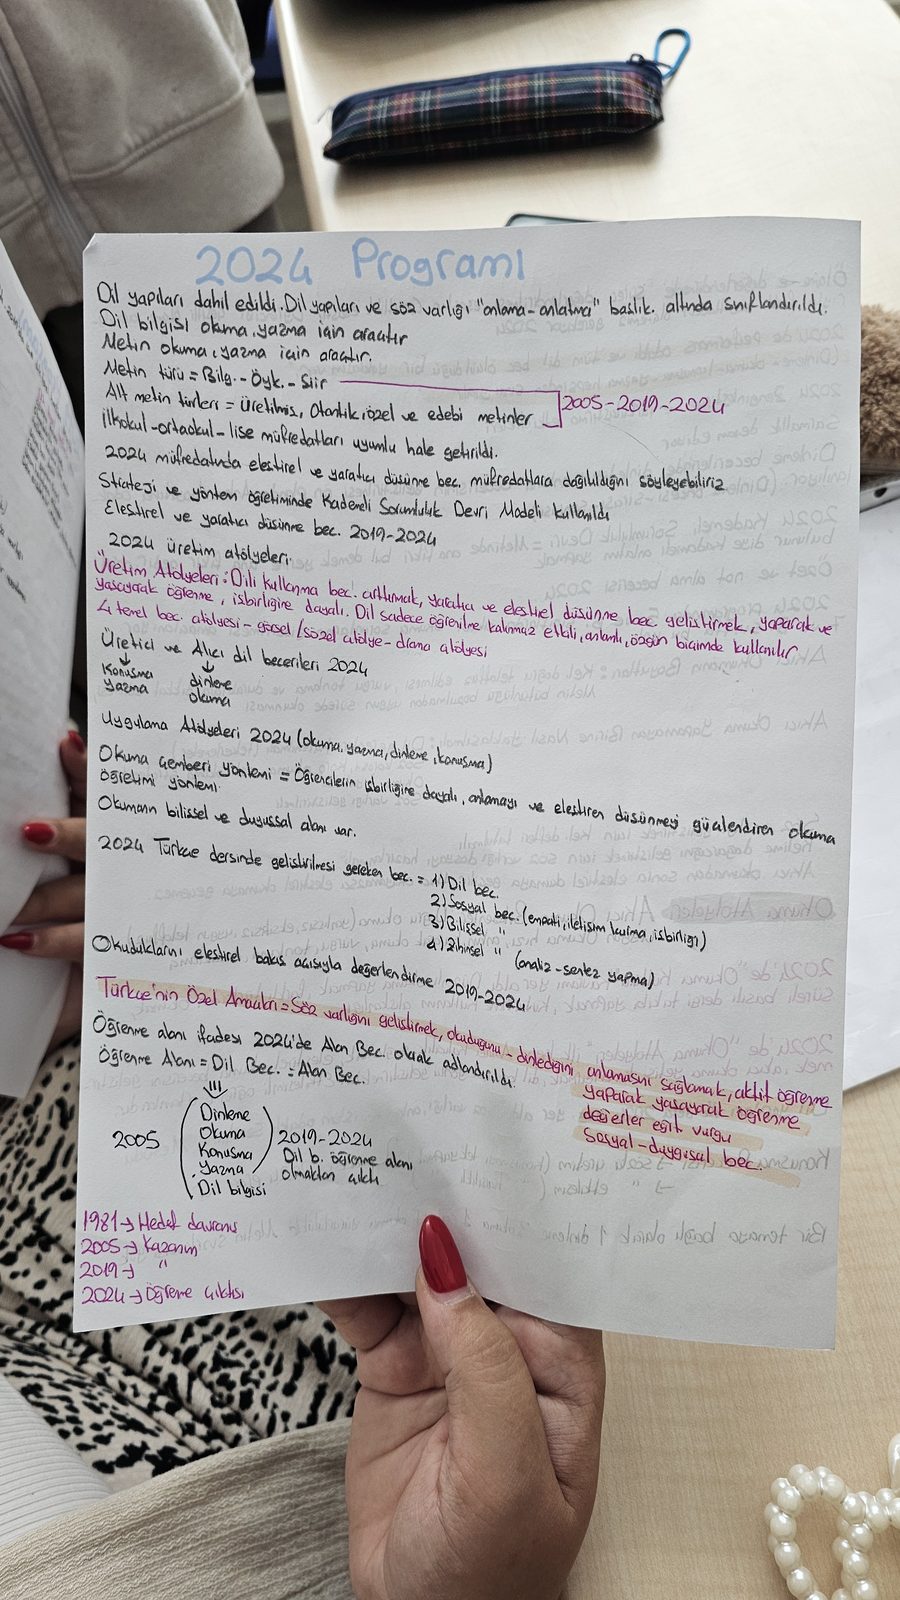 2024 Programı
Dil yapıları dahil edildi. Dil yapıları ve söz varlığı "anlama-anlatma" başlık. altında sınıflandırıldı.
Dil bilgisi okuma, yazma için araçtır
Metin okuma, yazma için araçtır.
Metin türü = Bilg. - Öyk. - Şiir
Alt metin türleri = Üretilmiş, Otantik, özel ve edebi metinler
2005-2019-2024
İlkokul-ortaokul-lise müfredatları uyumlu hale getirildi.
2024 müfredatında eleştirel ve yaratıcı düşünme bec. müfredatlara dağıldığını söyleyebiliriz
Strateji ve yöntem öğretiminde Kademeli Sorumluluk Devri Modeli kullanıldı
Eleştirel ve yaratıcı düşünme bec. 2019-2024
2024 üretim atölyeleri.
Üretim Atölyeleri: Dili kullanma bec. arttırmak, yaratıcı ve eleştirel düşünme bec geliştirmek, yaparak ve
yaşayarak öğrenme, işbirliğine dayalı. Dil sadece öğrenilme kalınmaz etkili, anlamlı, özgün biçimde kullanılır
4 temel bec. atölyesi - görsel/sözel atölye - drama atölyesi
Üretici ve Alıcı dil becerileri 2024
Konuşma
yazma
dinleme
okuma
Uygulama Atölyeleri 2024 (okuma, yazma, dinleme, konuşma)
Okuma Çemberi yöntemi = Öğrencilerin işbirliğine dayalı, anlamayı ve eleştiren düşünmeyi güçlendiren okuma
öğretimi yöntemi.
Okumanın bilişsel ve duyuşsal alanı var.
2024 Türkçe dersinde geliştirilmesi gereken bec. = 1) Dil bec.
2) Sosyal bec. (empati, iletişim kurma, işbirliği)
3) Bilişsel "
4) Zihinsel " (analiz-sentez yapma)
Okuduklarını eleştirel bakış açısıyla değerlendirme 2019-2024
Türkçe'nin Özel Amaçları = Söz varlığını geliştirmek, okuduğunu - dinlediğini anlamasını sağlamak, aktif öğrenme
yaparak yaşayarak öğrenme
değerler eğit. vurgu
Sosyal-duygusal bec.
Öğrenme alanı ifadesi 2024'de Alan Bec. olarak adlandırıldı.
Öğrenme Alanı = Dil Bec. = Alan Bec.
2005
Dinleme
Okuma
Konuşma
Yazma
Dil bilgisi
2019-2024
Dil b. öğrenme alanı
olmaktan çıktı
1981 → Hedef davranış
2005 → Kazanım
2019 → "
2024 → Öğrenme çıktısı